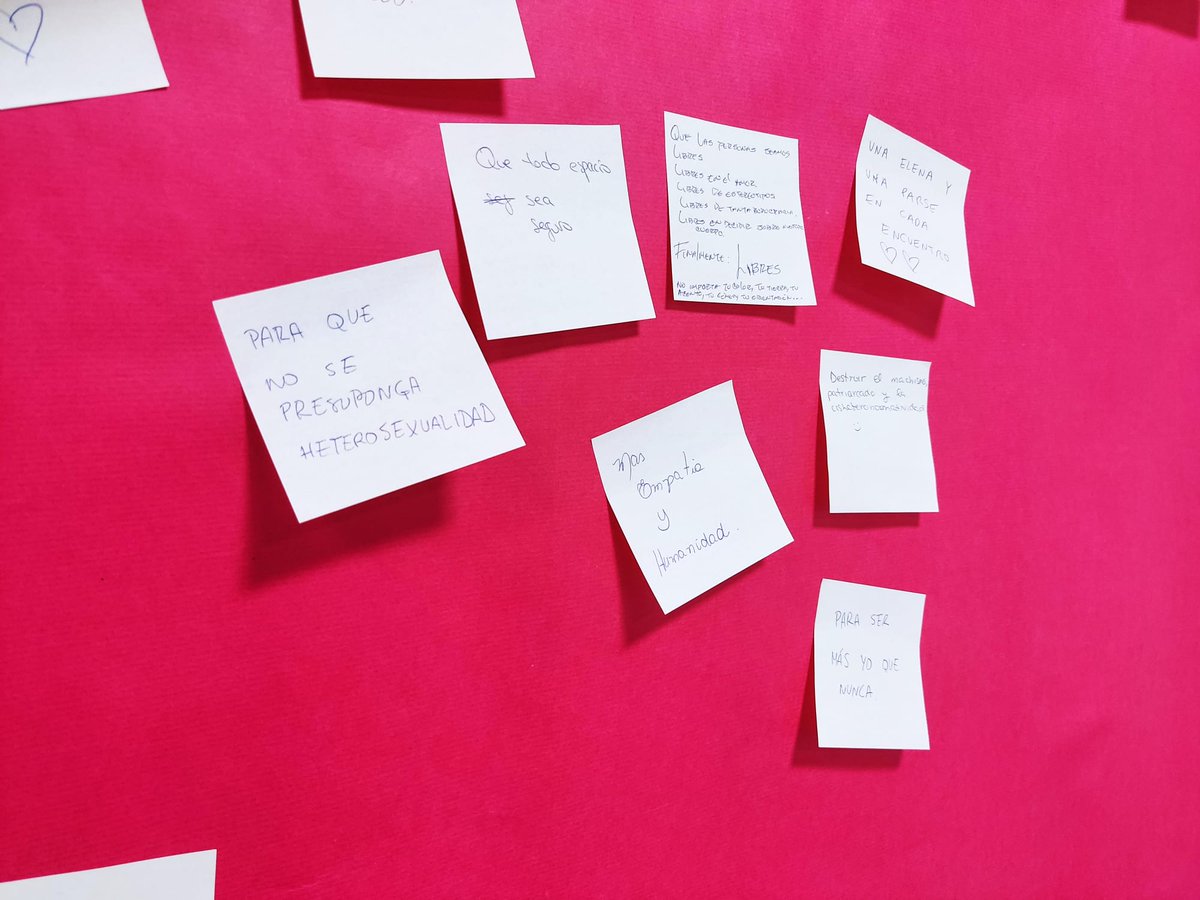 Que todo espacio
sej sea
seguro
QUE LAS PERSONAS SEAMOS
LIBRES
LIBRES EN EL AMOR
LIBRES DE ESTEREOTIPOS
LIBRES DE TANTA BUROCRACIA.
LIBRES EN DECIDIR SOBRE NUESTRO
CUERPO.
FINALMENTE: LIBRES
NO IMPORTA TU COLOR, TU TIERRA, TU
ACENTO, TU GÉNERO, TU ORIENTACIÓN...
UNA ELENA Y
UNA PARSE
EN CADA
ENCUENTRO
PARA QUE
NO SE
PRESUPONGA
HETEROSEXUALIDAD
Destruir el machismo,
patriarcado y la
cisheteronormatividad
Mas
Empatia
y
Humanidad.
PARA SER
MÁS YO QUE
NUNCA.